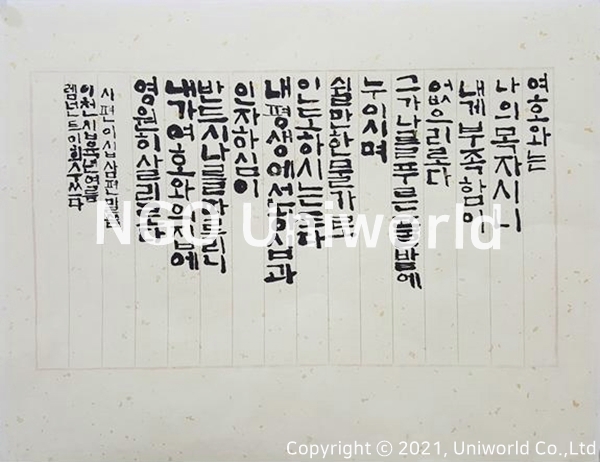 여호와는
나의 목자시니
내게 부족함이
없으리로다
그가 나를 푸른 풀밭에
누이시며
쉴만한 물가로
인도하시는도다
내 평생에 선하심과
인자하심이
반드시 나를 따르리니
내가 여호와의 집에
영원히 살리로다
시편 이십삼편 말씀
이천십육년 여름
렘넌트 이희수 쓰다
NGO Uniworld
Copyright ⓒ 2021, Uniworld Co.,Ltd